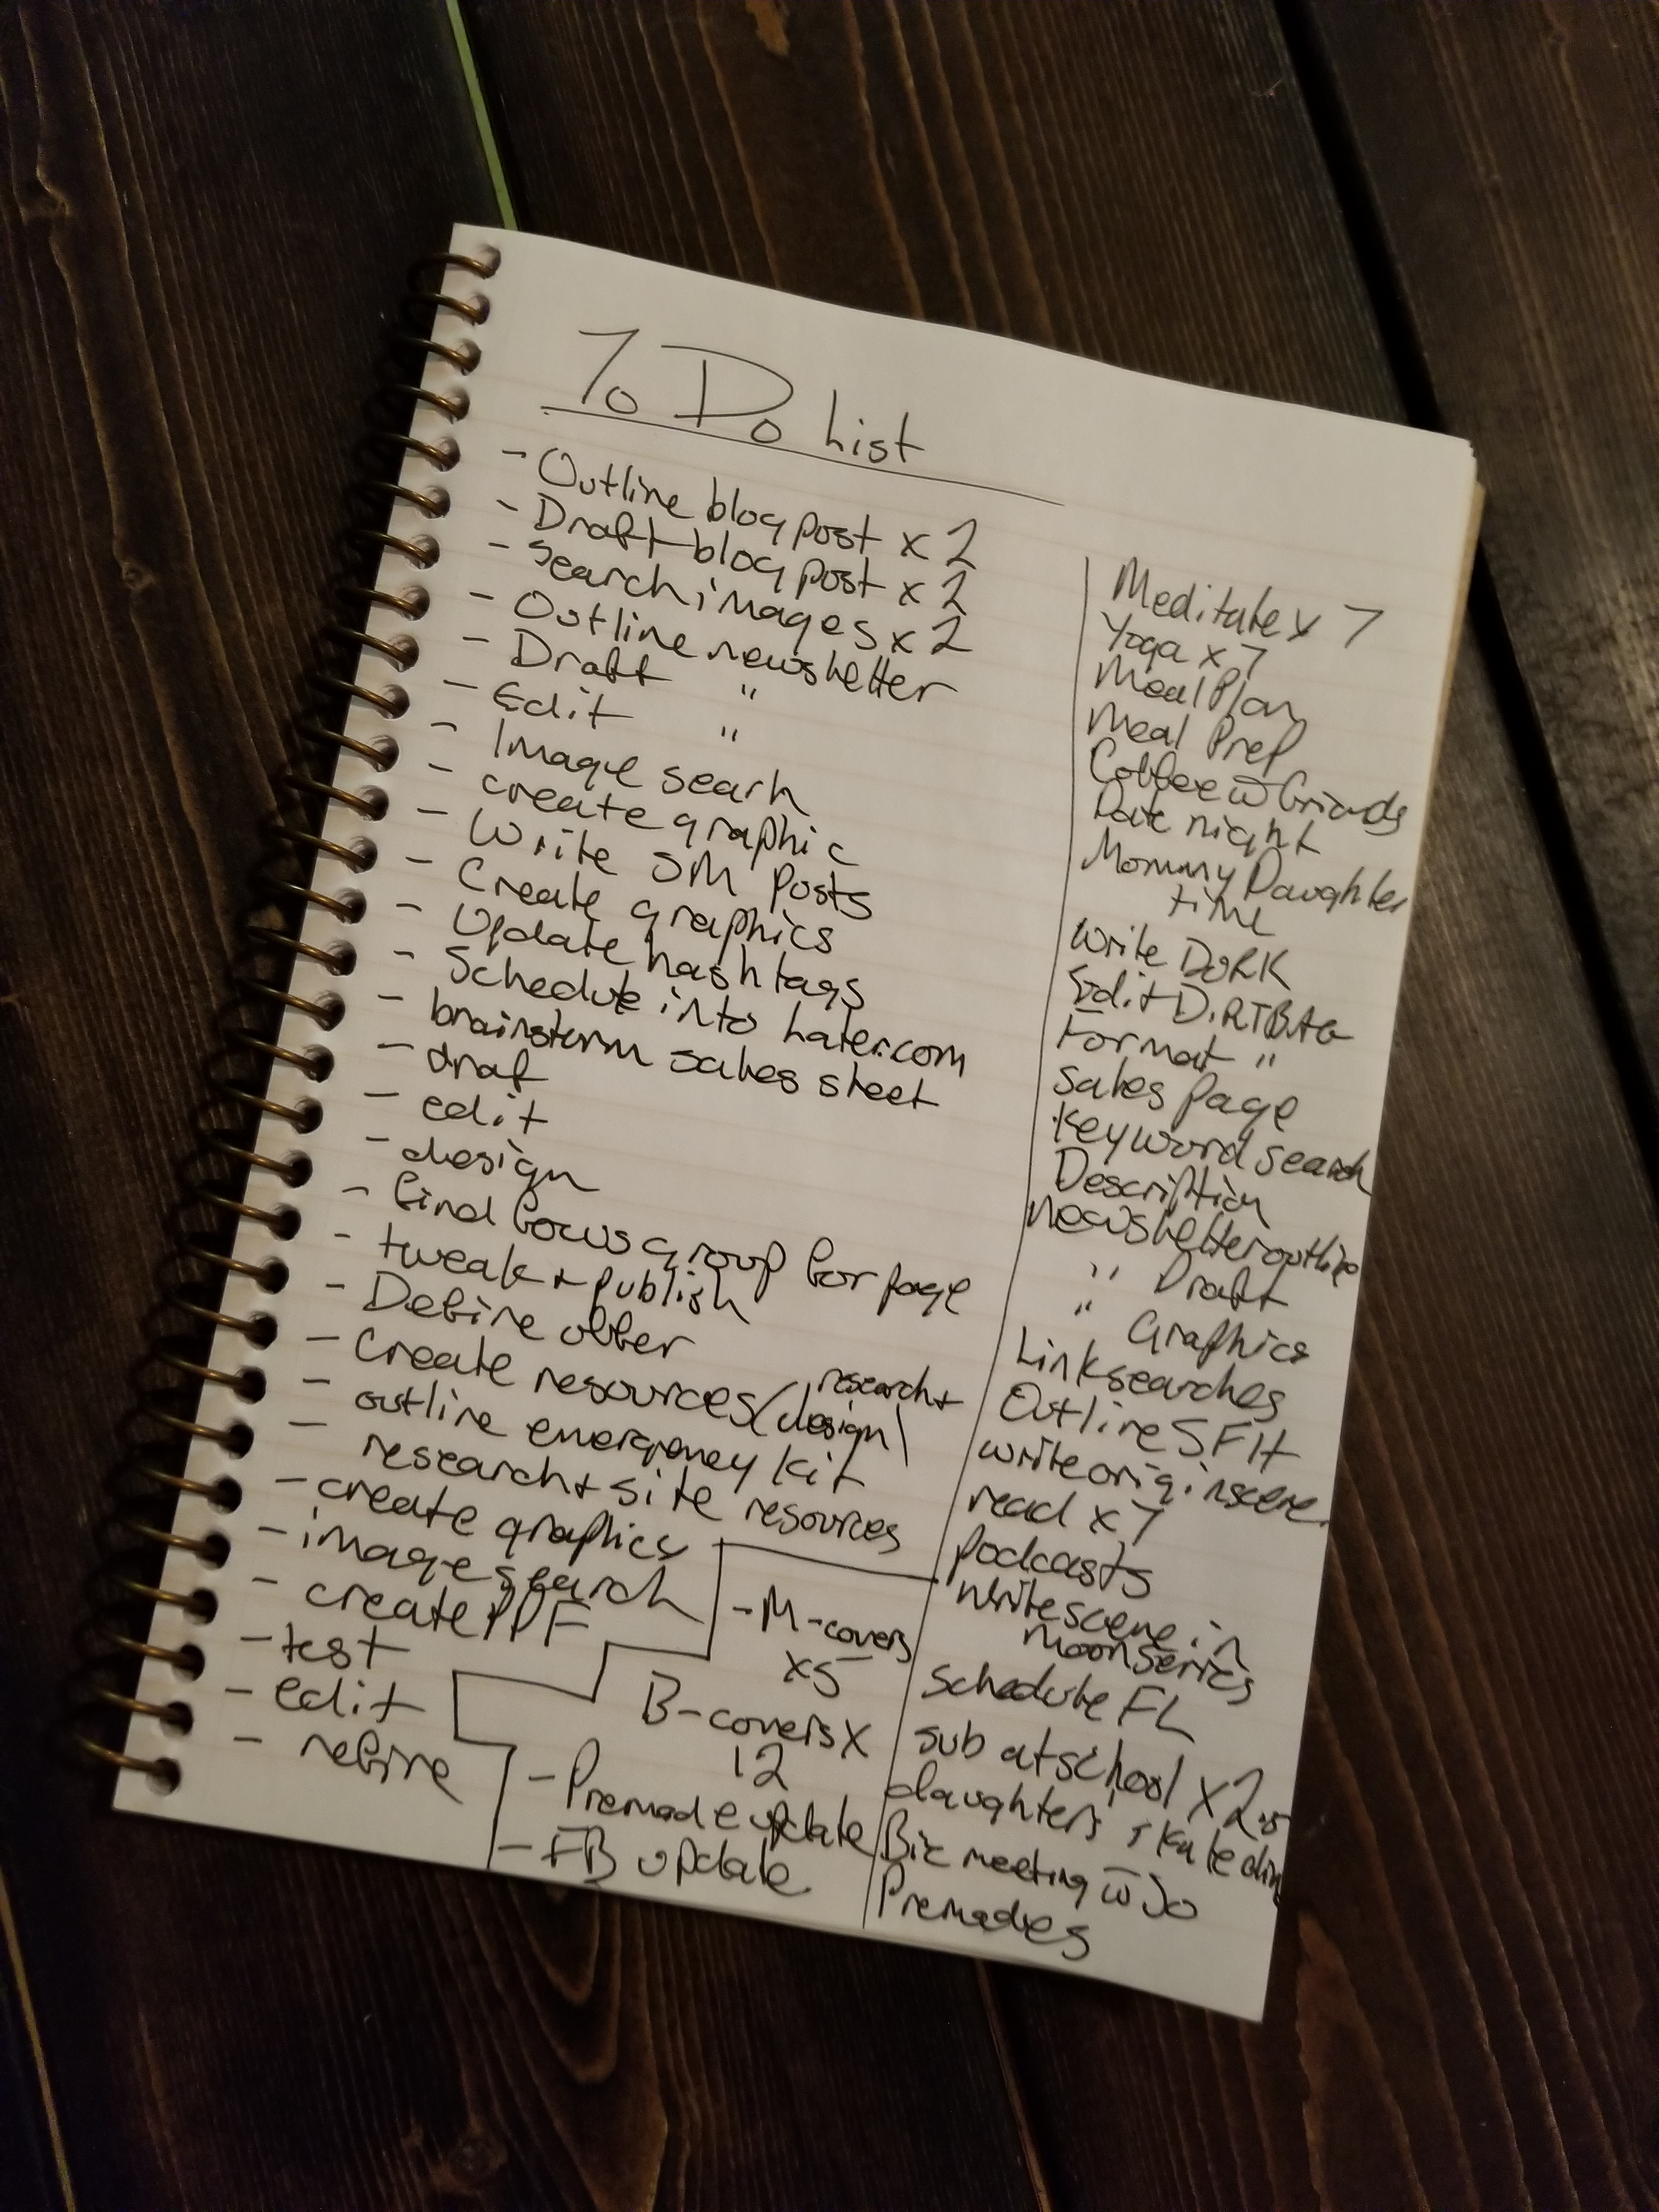 To Do List
- Outline blog post x 2
- Draft blog post x 2
- Search images x 2
- Outline newsletter
- Draft "
- Edit "
- Image searh
- create graphic
- Write SM posts
- Create graphics
- Update hashtags
- Schedule into Later.com
- brainstorm sales sheet
- draf
- edit
- design
- find focus group for page
- tweak + publish
- Define offer
- Create resources (research + design)
- outline emergency kit
- research + site resources
- create graphics
- image search
- create PDF
- test
- edit
- refine
- M-covers
x5
B-covers x
12
- Premade update
- FB update
Meditate x 7
Yoga x 7
Meal Plan
Meal Prep
Coffee w friends
Date night
Mommy Daughter
time
Write DORK
Edit DIRTBAG
Format "
Sales page
Keyword search
Description
newsletter outline
" Draft
" Graphics
Link searches
Outline SFH
write origin scene
read x 7
podcasts
Write scene in
moon series
Schedule FL
sub at school x 2.5
daughters skate
Biz meeting w Jo
Premades